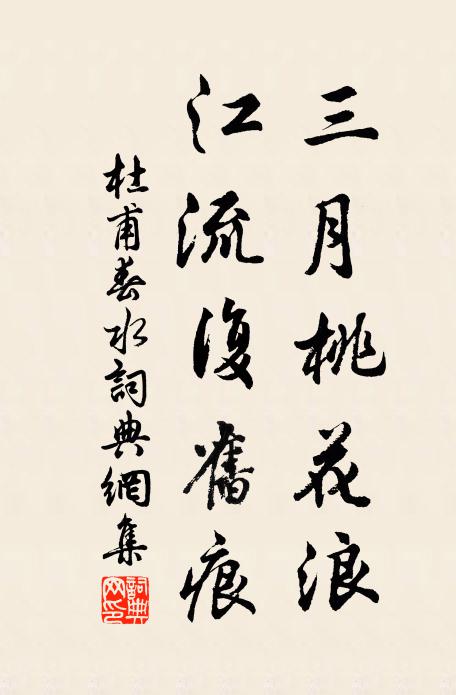 三月桃花浪
江流復舊痕
杜甫春水詞典網集
詞典網印